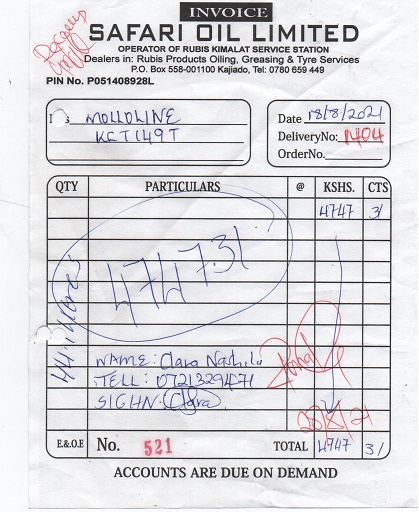 INVOICE
SAFARI OIL LIMITED
OPERATOR OF RUBIS KIMALAT SERVICE STATION
Dealers in: Rubis Products Oiling, Greasing & Tyre Services
P.O. Box 558-001100 Kajiado, Tel: 0780 659 449
PIN No. P051408928L
MOLLOLINE
KCT 149T
Date 18/8/2021
DeliveryNo: 1404
OrderNo.
QTY PARTICULARS @ KSHS. CTS
4747 31
4747.31
NAME: Clara
TELL: 0721329471
SIGHN: Clara
20/8/21
E.&O.E No. 521 TOTAL 4747 31
ACCOUNTS ARE DUE ON DEMAND